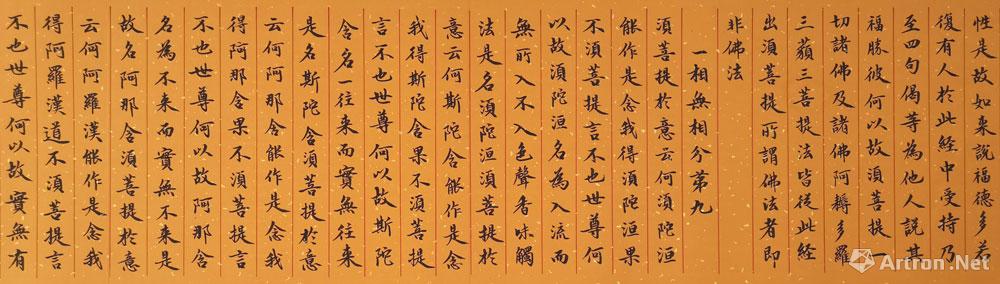 性是故如来説福德多若
復有人於此経中受持乃
至四句偈等為他人説其
福勝彼何以故須菩提一
切諸佛及諸佛阿耨多羅
三藐三菩提法皆従此経
出須菩提所謂佛法者即
非佛法
一相無相分第九
須菩提於意云何須陀洹
能作是念我得須陀洹果
不須菩提言不也世尊何
以故須陀洹名為入流而
無所入不入色聲香味觸
法是名須陀洹須菩提於
意云何斯陀含能作是念
我得斯陀含果不須菩提
言不也世尊何以故斯陀
含名一往来而實無往来
是名斯陀含須菩提於意
云何阿那含能作是念我
得阿那含果不須菩提言
不也世尊何以故阿那含
名為不来而實無不来是
故名阿那含須菩提於意
云何阿羅漢能作是念我
得阿羅漢道不須菩提言
不也世尊何以故實無有
Artron.Net